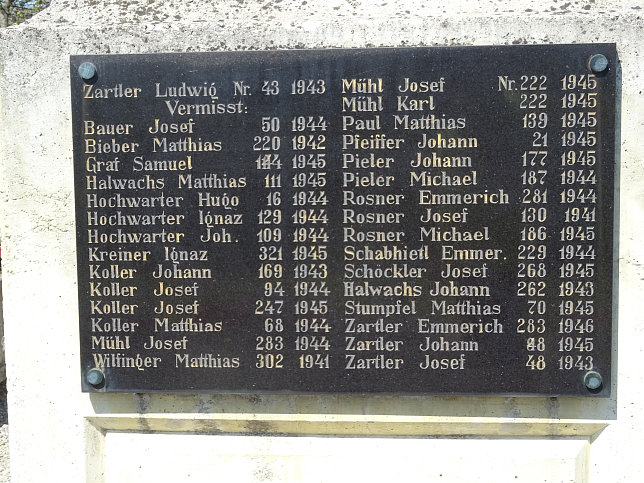 Zartler Ludwig Nr. 43 1943
Vermisst:
Bauer Josef 50 1944
Bieber Matthias 220 1942
Graf Samuel 144 1945
Halwachs Matthias 111 1945
Hochwarter Hugo 16 1944
Hochwarter Ignaz 129 1944
Hochwarter Joh. 109 1944
Kreiner Ignaz 321 1945
Koller Johann 169 1943
Koller Josef 94 1944
Koller Josef 247 1945
Koller Matthias 68 1944
Mühl Josef 283 1944
Wilfinger Matthias 302 1941
Mühl Josef Nr. 222 1945
Mühl Karl 222 1945
Paul Matthias 139 1945
Pfeiffer Johann 21 1945
Pieler Johann 177 1945
Pieler Michael 187 1944
Rosner Emmerich 281 1944
Rosner Josef 130 1941
Rosner Michael 186 1945
Schabhietl Emmer. 229 1944
Schöckler Josef 268 1945
Halwachs Johann 262 1943
Stumpfel Matthias 70 1945
Zartler Emmerich 283 1946
Zartler Johann 48 1945
Zartler Josef 48 1943